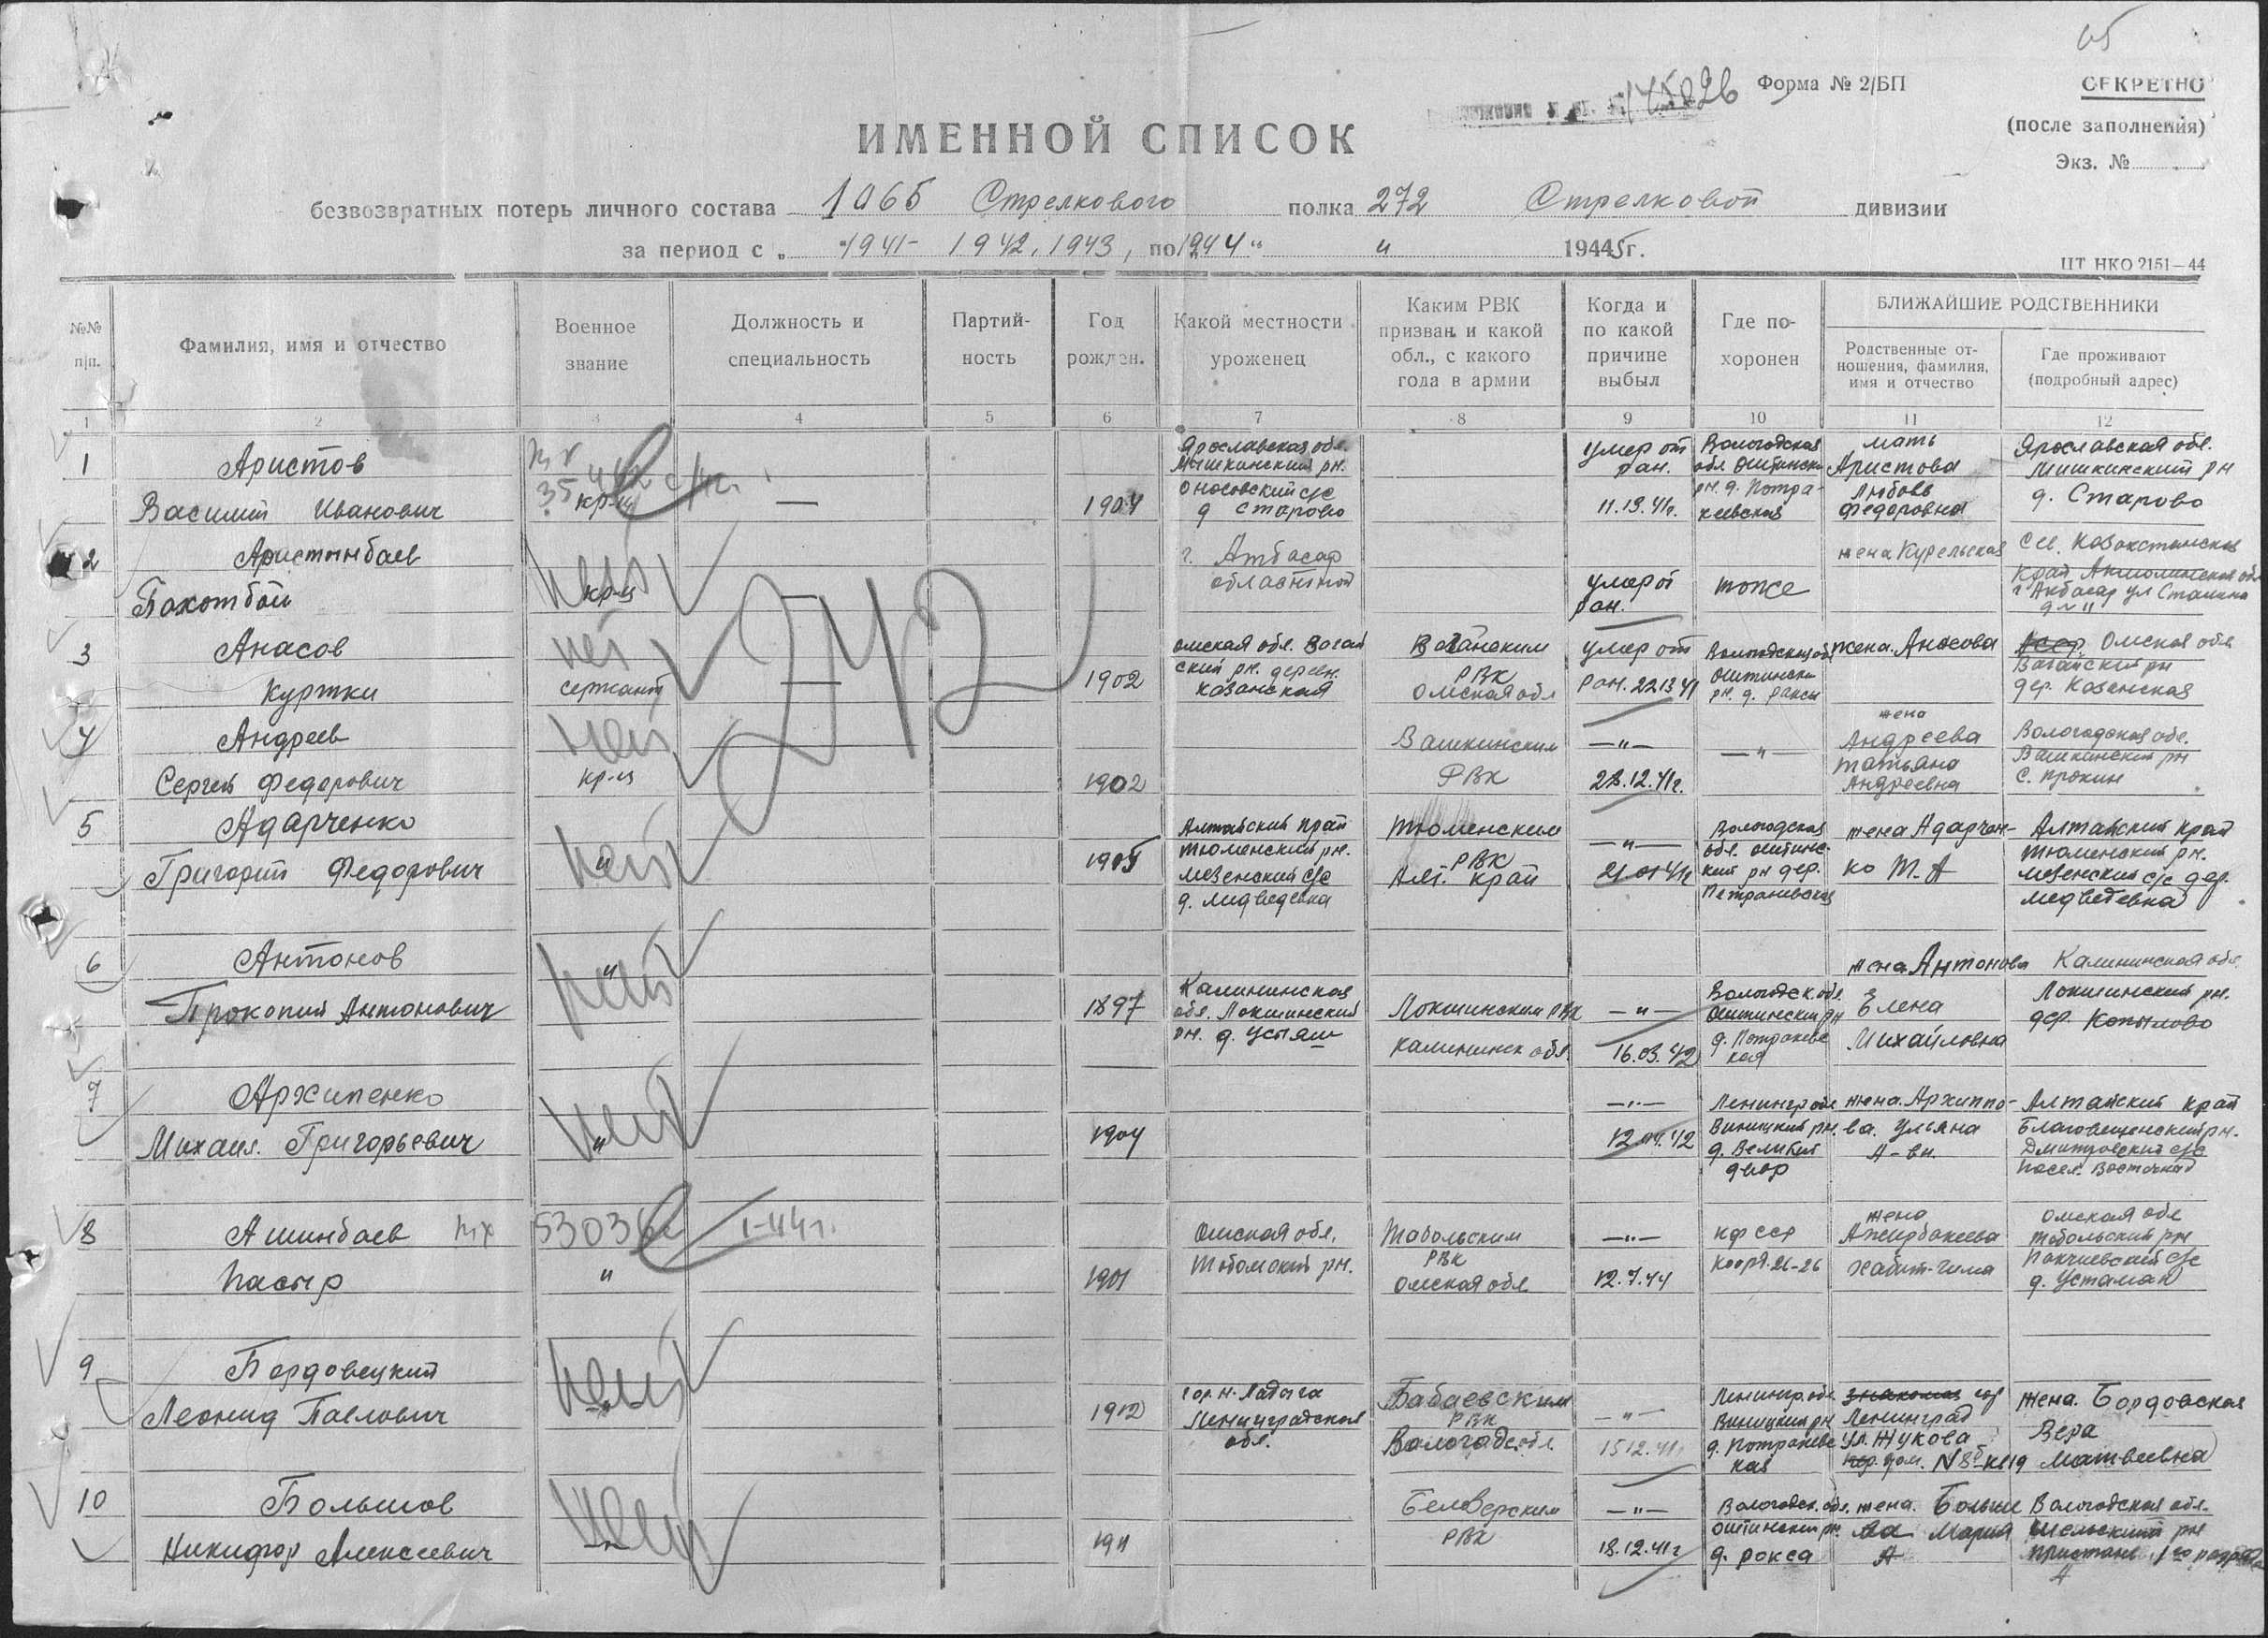 65
145026
Форма № 2/БП
СЕКРЕТНО
(после заполнения)
Экз. №
ИМЕННОЙ СПИСОК
безвозвратных потерь личного состава 1065 Стрелкового полка 272 Стрелковой дивизии
за период с „ 1941- 1942, 1943, по 1944 " " 19445г.
ЦТ НКО 2151—44
№№ п/п.
Фамилия, имя и отчество
Военное звание
Должность и специальность
Партий-ность
Год рожден.
Какой местности уроженец
Каким РВК призван и какой обл., с какого года в армии
Когда и по какой причине выбыл
Где по-хоронен
БЛИЖАЙШИЕ РОДСТВЕННИКИ
Родственные от-ношения, фамилия, имя и отчество
Где проживают (подробный адрес)
1 2 3 4 5 6 7 8 9 10 11 12
742
1
Аристов
Василий Иванович
кр-ц
—
1904
Ярославская обл.
Мышкинский рн.
Оносовский с/с
д Старово
умер от
ран.
11.13.41г.
Вологодская
обл. Оштински
рн. д. Потра-
кеевская
мать
Аристова
Любовь
Федоровна
Ярославская обл.
Мишкинский рн
д. Старово
2
Аристынбаев
Бахотбай
нет
кр-ц
г. Атбасар
областной
умер от
ран.
тоже
жена Курельская
Сев. Казахстанская
край Акмолинская об
г Акбасар ул Сталина
3
Анасов
Куртки
нет
сержант
—
1902
Омская обл. Вагай
ский рн. дерев.
Казанская
Вагайским
РВК
Омская обл
умер от
ран. 22 13 41
Вологодская об
Оштински
рн. д. роксы
жена. Анасова
Омская обл
Вагайский рн
дер. Казанская
4
Андреев
Сергей Федорович
нет
кр-ц
1902
Вашкинским
РВК
—"—
28.12.41г.
—"—
жена
Андреева
Татьяна
Андреевна
Вологодская обл.
Вашкинский рн
с. Пронин
5
Адарченко
Григорий Федорович
нет
"
1905
Алтайский край
Тюменский рн.
Мезенский с/с
д. Медведевка
Тюменским
РВК
Алт. край
—"—
21 01 41г
Вологодская
обл. оштинс-
кий рн дер.
Петраневская
жена Адарчен-
ко Т. А
Алтайский край
Тюменский рн.
Мезенский с/с дер.
Медветевка
6
Антонов
Прокопий Антонович
нет
"
1897
Калининская
обл. Локшинский
рн. д. Устям
Локшинским РВК
калининск обл.
—"—
16.03.42
Вологодск. обл.
Оштинский рн
д. Потраневс
кая
жена Антонова
Елена
Михайловна
Калининская обл.
Локшинский рн.
дер. Копылово
7
Архипенко
Михаил. Григорьевич
нет
"
1904
—"—
12.04.42
Ленингр обл
Винницкий рн.
д. Великий
двор
жена. Архиппо-
ва. Ульяна
А-вн.
Алтайский край
Благовещенский рн.
Дмитровский с/с
посел. Восточный
8
Ашинбаев
Насыр
53036
1-44г.
"
1901
Омская обл.
Тобомский рн.
Тобольским
РВК
Омская обл
—"—
12.7.44
КФССР
коорд. 26-26
жена
Ажирбакеева
Хабит-Чима
Омская обл
Тобольский рн
Покчиевский с/с
д. Устаман
9
Бордовецкий
Леонид Павлович
нет
1912
гор. Н. Ладога
Ленинградская
обл.
Бабаевским
РВК
Вологодс. обл.
—"—
15 12.41г
Ленингр. обл.
Винницкий рн
д. Потраневс
кая
знакомая гор
Ленинград
ул. Жукова
дом. N 8б-кв 19
жена. Бордовская
Вера
Матвеевна
10
Большов
Никифор Алексеевич
нет
1911
Белозерским
РВК
—"—
18.12.41г
Вологодск. обл.
Оштинский рн.
д. рокса
жена. Больше
ва Мария
А
Вологодская обл.
Шольский рн
Пристань 1го разряда